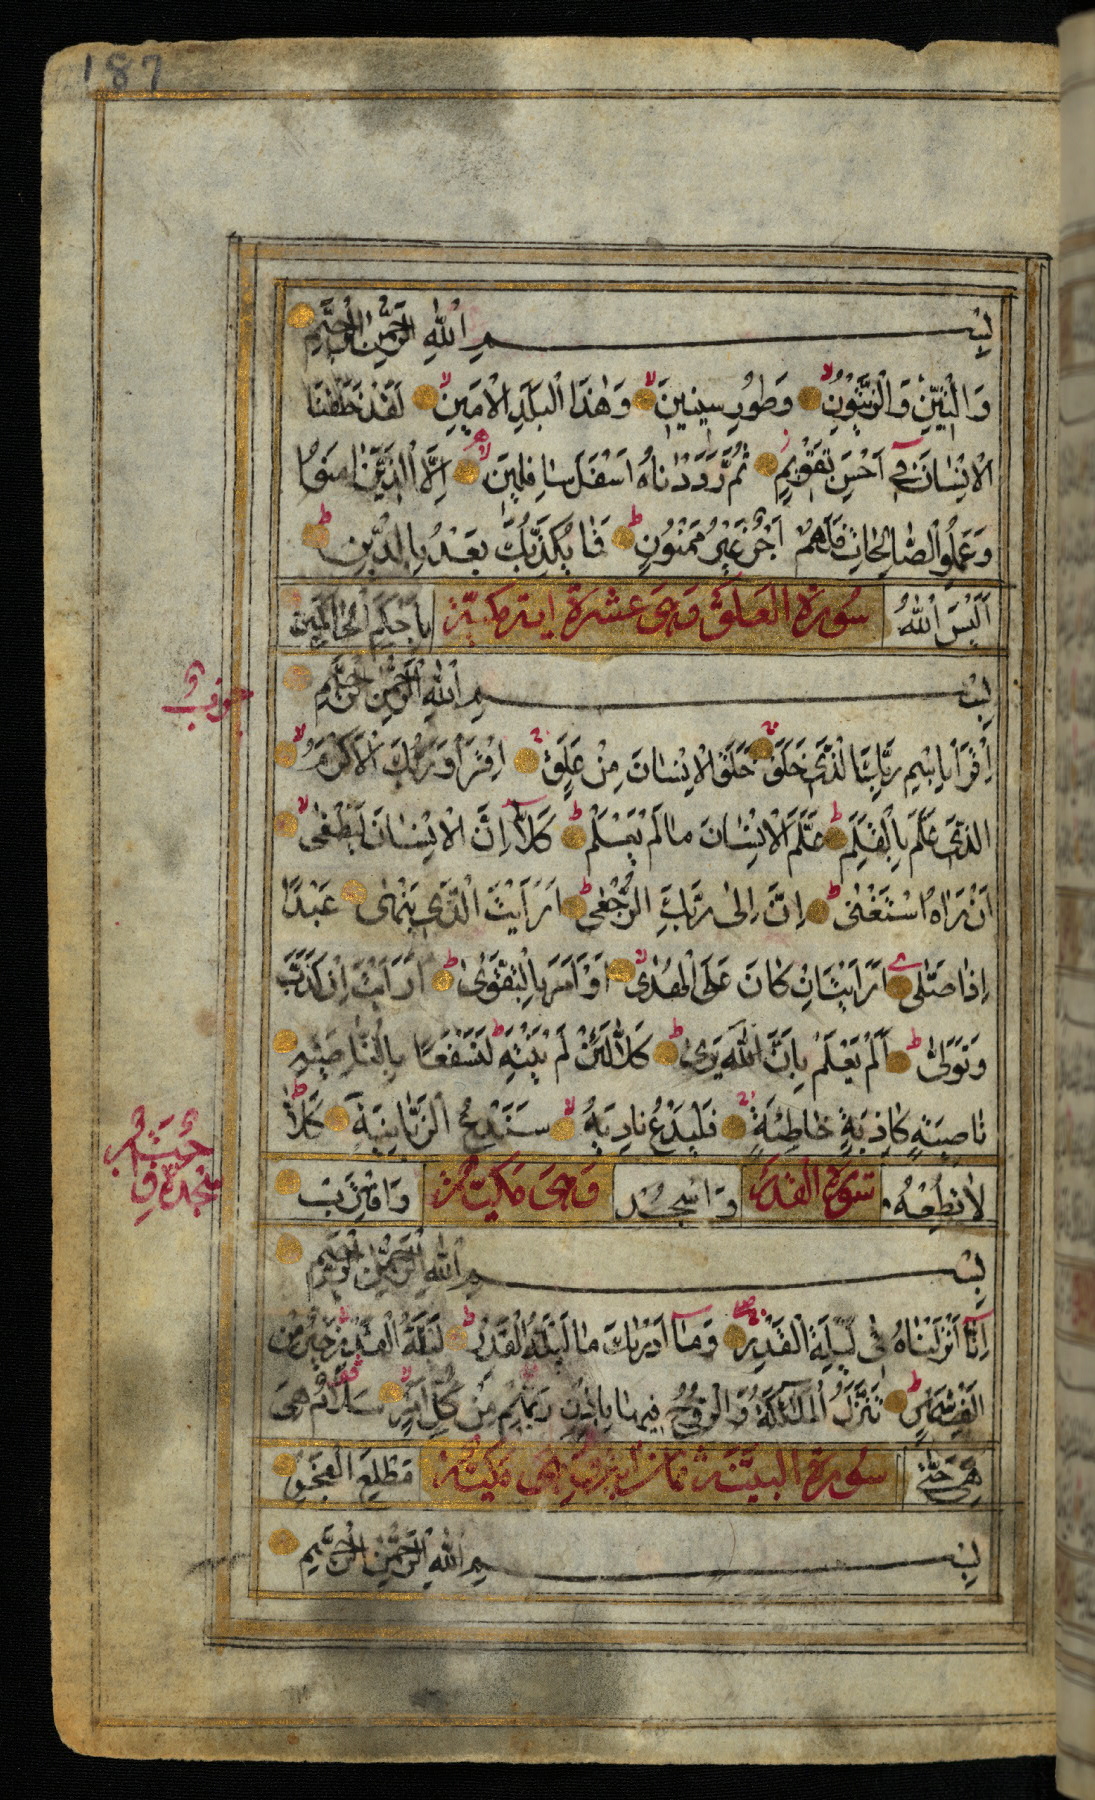 187
بِسْمِ اللّٰهِ الرَّحْمٰنِ الرَّحِيمِ
وَالتِّينِ وَالزَّيْتُونِ وَطُورِ سِينِينَ وَهٰذَا الْبَلَدِ الْاَمِينِ لَقَدْ خَلَقْنَا
الْاِنْسَانَ فِي اَحْسَنِ تَقْوِيمٍ ثُمَّ رَدَدْنَاهُ اَسْفَلَ سَافِلِينَ اِلَّا الَّذِينَ اٰمَنُوا
وَعَمِلُوا الصَّالِحَاتِ فَلَهُمْ اَجْرٌ غَيْرُ مَمْنُونٍ فَمَا يُكَذِّبُكَ بَعْدُ بِالدِّينِ
اَلَيْسَ اللّٰهُ سُورَة الْعَلَق وَهِيَ عَشَرَة اية مكية بِاَحْكَمِ الْحَاكِمِينَ
بِسْمِ اللّٰهِ الرَّحْمٰنِ الرَّحِيمِ
اِقْرَأْ بِاسْمِ رَبِّكَ الَّذِي خَلَقَ خَلَقَ الْاِنْسَانَ مِنْ عَلَقٍ اِقْرَأْ وَرَبُّكَ الْاَكْرَمُ
الَّذِي عَلَّمَ بِالْقَلَمِ عَلَّمَ الْاِنْسَانَ مَا لَمْ يَعْلَمْ كَلَّا اِنَّ الْاِنْسَانَ لَيَطْغٰى
اَنْ رَاٰهُ اسْتَغْنٰى اِنَّ اِلٰى رَبِّكَ الرُّجْعٰى اَرَاَيْتَ الَّذِي يَنْهٰى عَبْدًا
اِذَا صَلّٰى اَرَاَيْتَ اِنْ كَانَ عَلَى الْهُدٰى اَوْ اَمَرَ بِالتَّقْوٰى اَرَاَيْتَ اِنْ كَذَّبَ
وَتَوَلّٰى اَلَمْ يَعْلَمْ بِاَنَّ اللّٰهَ يَرٰى كَلَّا لَئِنْ لَمْ يَنْتَهِ لَنَسْفَعًا بِالنَّاصِيَةِ
نَاصِيَةٍ كَاذِبَةٍ خَاطِئَةٍ فَلْيَدْعُ نَادِيَهُ سَنَدْعُ الزَّبَانِيَةَ كَلَّا
لَا تُطِعْهُ سُورَة الْقَدْر وَاسْجُدْ وَهِيَ مَكِّيَّة وَاقْتَرِبْ
بِسْمِ اللّٰهِ الرَّحْمٰنِ الرَّحِيمِ
اِنَّا اَنْزَلْنَاهُ فِي لَيْلَةِ الْقَدْرِ وَمَا اَدْرٰىكَ مَا لَيْلَةُ الْقَدْرِ لَيْلَةُ الْقَدْرِ خَيْرٌ مِنْ
اَلْفِ شَهْرٍ تَنَزَّلُ الْمَلٰئِكَةُ وَالرُّوحُ فِيهَا بِاِذْنِ رَبِّهِمْ مِنْ كُلِّ اَمْرٍ سَلَامٌ هِيَ
هِيَ حَتّٰى سُورَة الْبَيِّنَة ثمان اية وهى مكية مَطْلَعِ الْفَجْرِ
بِسْمِ اللّٰهِ الرَّحْمٰنِ الرَّحِيمِ